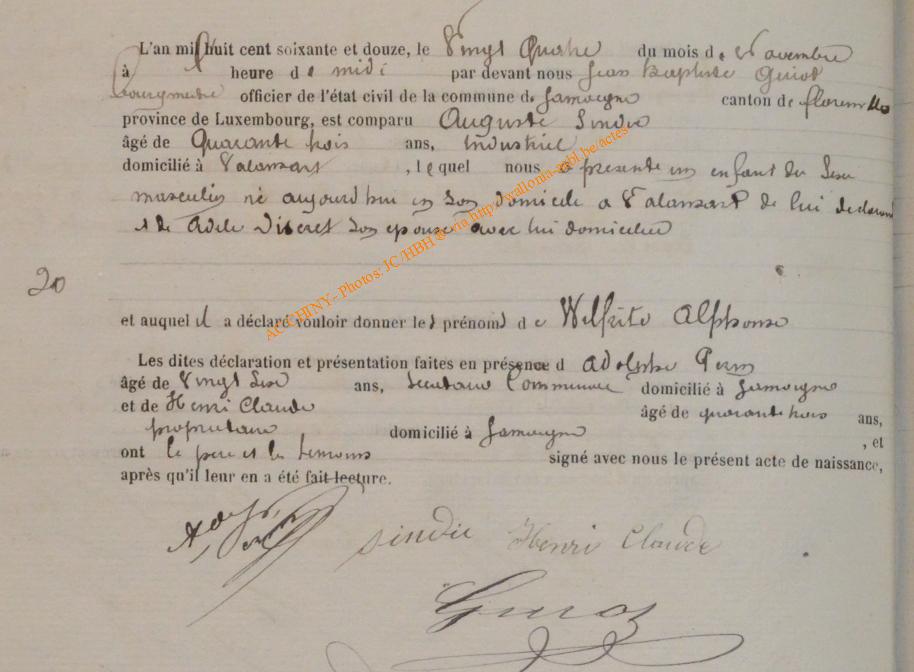 L'an mil huit cent soixante et douze, le Vingt Quatre du mois de Novembre
à heure de midi par devant nous Jean Baptiste Guiot
Bourgmestre officier de l'état civil de la commune de Jamoigne canton de florenville
province de Luxembourg, est comparu Auguste Sindic
âgé de Quarante trois ans, industriel
domicilié à Valansart, lequel nous a présenté un enfant du sexe
masculin né aujourd'hui en son domicile a Valansart de lui déclarant
et de Adele Discret son épouse avec lui domiciliée
20
et auquel il a déclaré vouloir donner les prénoms de Welfrite Alphonse
Les dites déclaration et présentation faites en présence d Adolphe
âgé de Vingt ans, Secretaire Communal domicilié à Jamoigne
et de Henri Claude âgé de quarante trois ans,
propriétaire domicilié à Jamoigne, et
ont le pere et les temoins signé avec nous le présent acte de naissance,
après qu'il leur en a été fait lecture.
Sindic Henri Claude
Guiot
AC CHINY - Photos: JC/HBH © via http://wallonia-asbl.be/actes